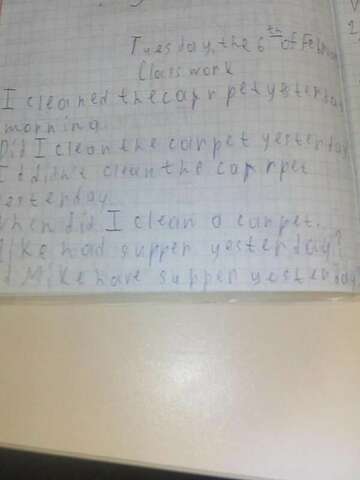 Tuesday, the 6th of Feb
Class work
I cleaned the caprpet yesterday
morning.
Did I clean the carpet yesterday
I didn't clean the caprpet
yesterday.
When did I clean a carpet.
Mike had supper yesterday?
d Mike have supper yesterday